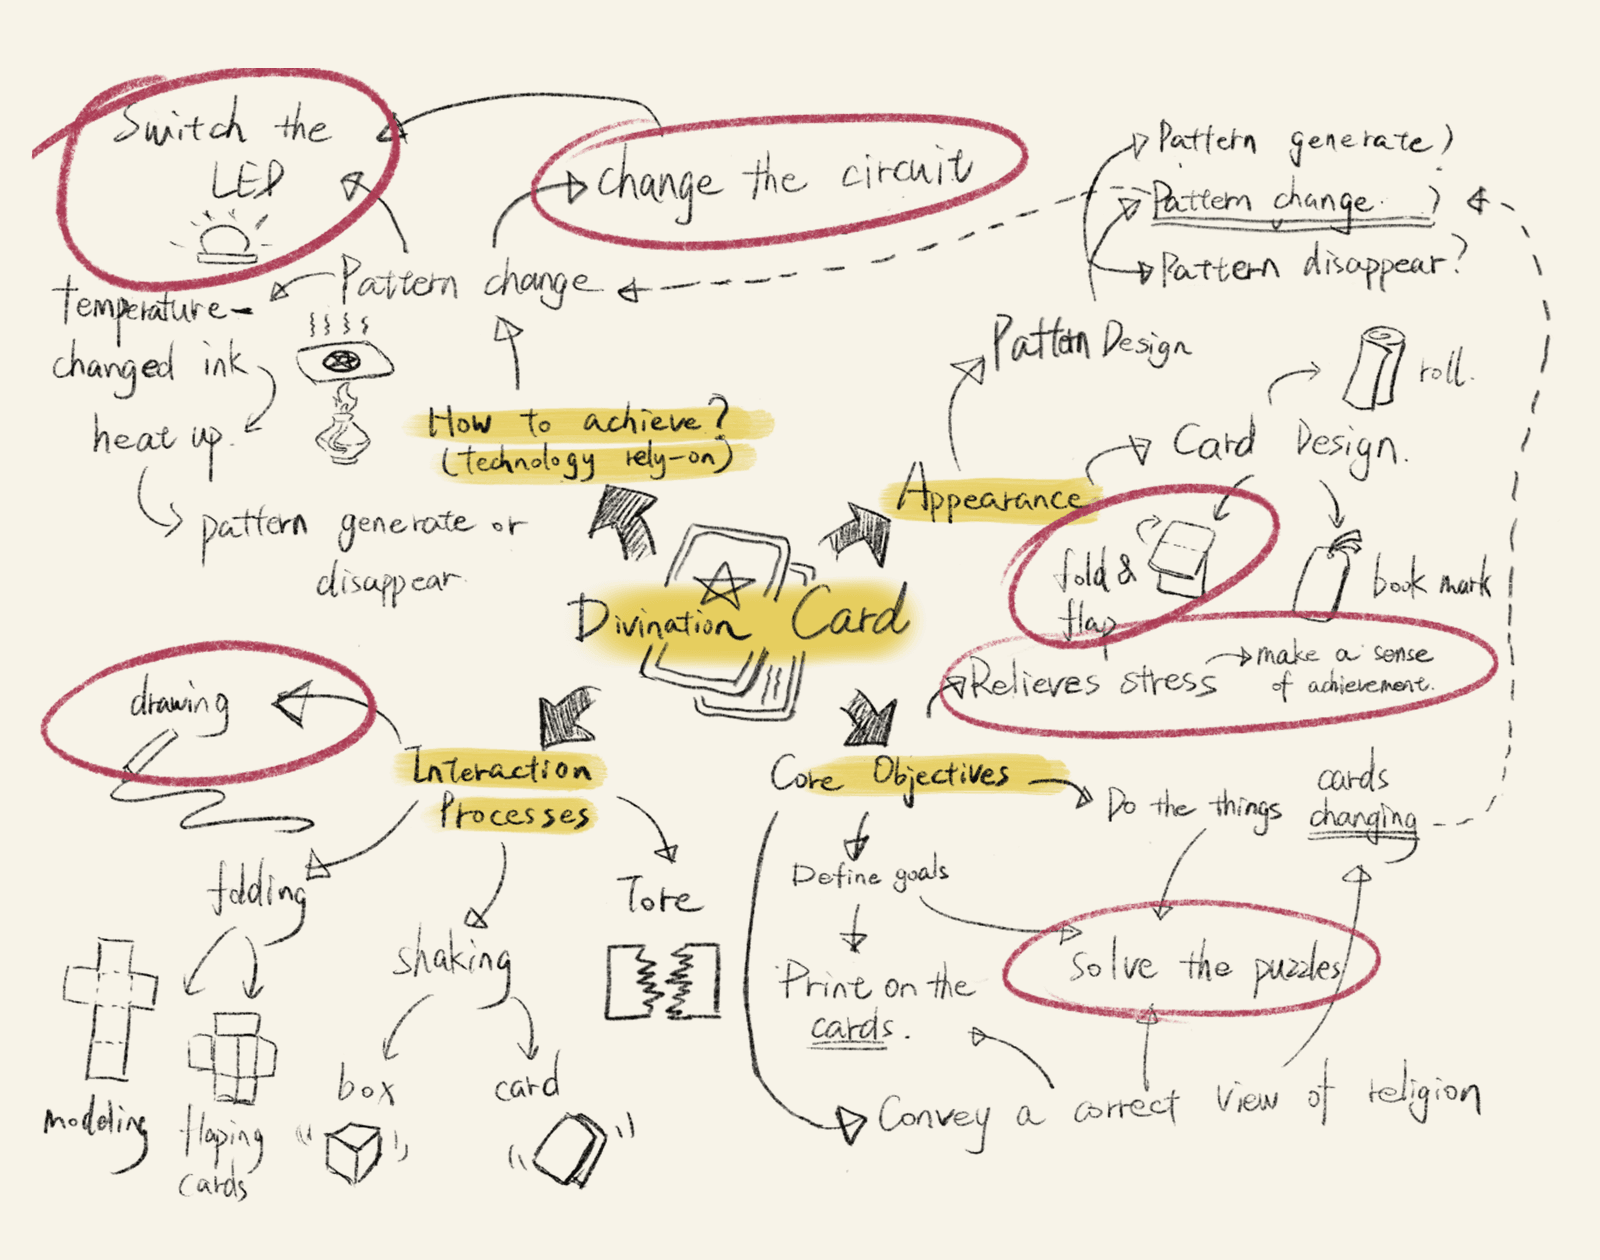 Switch the
LED
Change the circuit
Pattern generate?
Pattern change ?
Pattern disappear?
Pattern change
temperature-
changed ink
heat up.
pattern generate or
disappear.
How to achieve?
(technology rely-on)
Pattern Design
roll.
Card Design.
Appearance
fold &
flap
book mark
Divination Card
Relieves stress
make a sense
of achievement.
drawing
Interaction
Processes
Core Objectives
Do the things
cards
changing
Define goals
Print on the
cards.
Solve the puzzles
Convey a correct view of religion
folding
shaking
Tore
modeling
flaping
cards
box
card